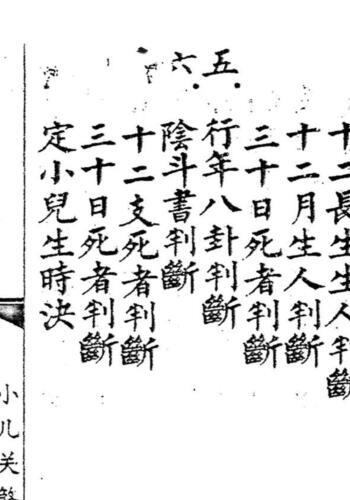 十二長生生人判斷
十二月生人判斷
三十日死者判斷
五
行年八卦判斷
六
陰斗書判斷
十二支死者判斷
三十日死者判斷
定小兒生時決
小儿关煞